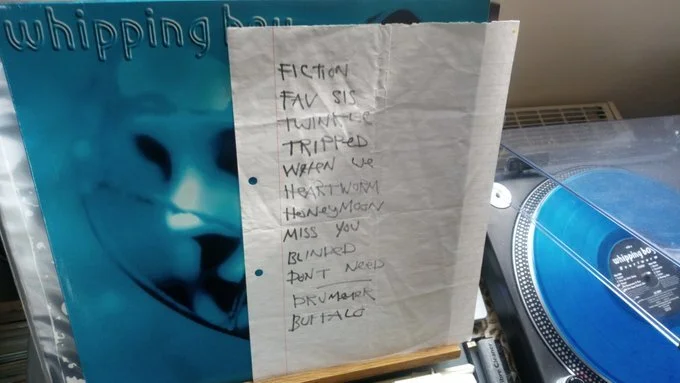 whipping boy
FICTION
FAV SIS
TWINKLE
TRIPPED
WHEN WE
HEARTWORM
HONEYMOON
MISS YOU
BLINDED
DON'T NEED
BUFFALO
whipping boy